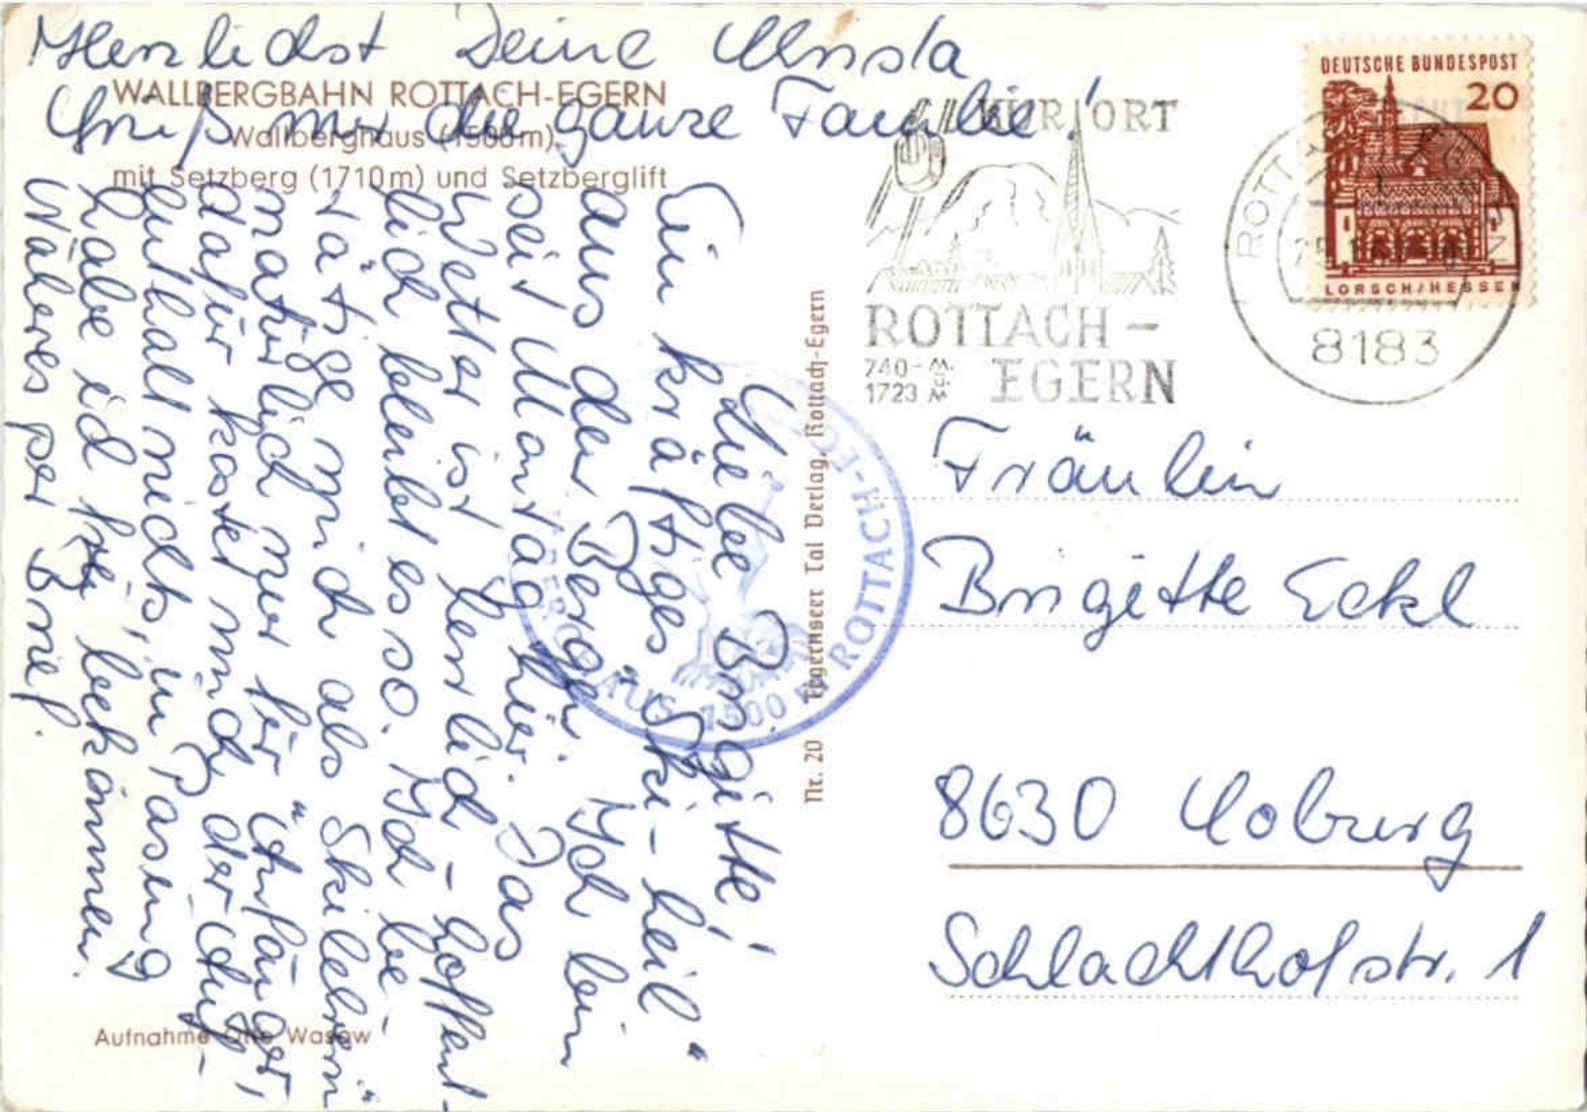 WALLBERGBAHN ROTTACH-EGERN
Wallberghaus (1500m)
mit Setzberg (1710m) und Setzberglift
Liebe Brigitte!
Ein kräftges "Ski-heil"
aus den Bergen. Ich bin
seit Montag hier. Das
Wetter ist herrlich - hoffent-
lich bleibt es so. Ich be-
tätige mich als "Skilehrerin"
natürlich nur für "Anfänger",
dafür kostet mich der Auf-
enthalt nichts, in Pasing
habe ich frei bekommen.
Näheres per Brief.
Herzlichst Deine Ursla
Grüß mir die ganze Familie!
Aufnahme Otto Wasow
Nr. 20 Tegernseer Tal Verlag, Rottach-Egern
HAUS 1500 M ROTTACH-EGERN
KURORT
ROTTACH-
740- M.
1723 M EGERN
ROTTACH-EGERN
8183
DEUTSCHE BUNDESPOST
20
LORSCH/HESSEN
Fräulein
Brigitte Eckl
8630 Coburg
Schlachthofstr. 1